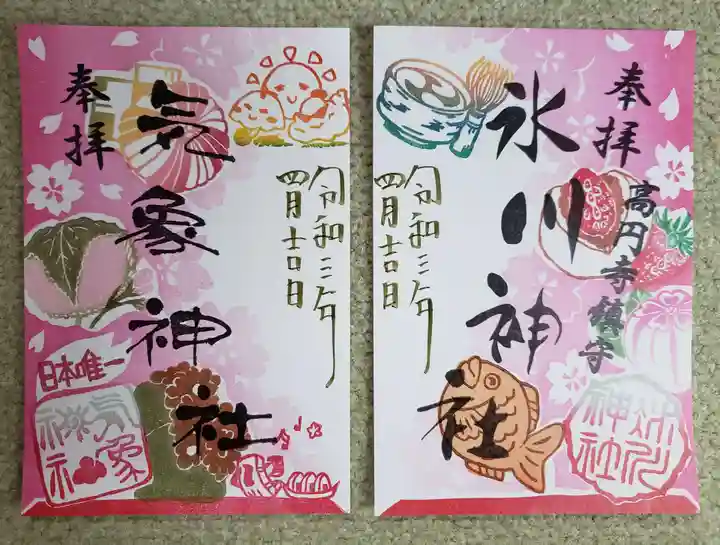 奉拝
氷川神社
高円寺鎮守
令和三年
四月吉日
氷川
神社
奉拝
気象神社
令和三年
四月吉日
日本唯一
気象
神社